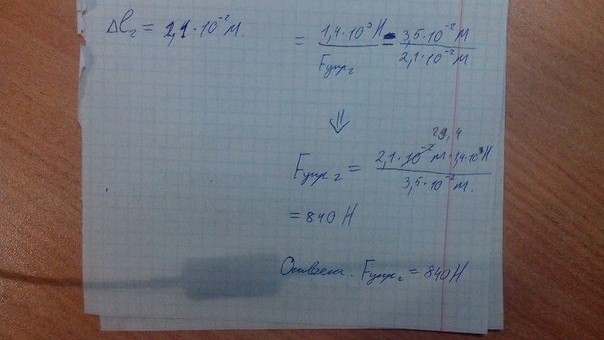 Δl₂ = 2,1·10⁻² м.
= 1,4·10³ Н / Fупр₂ = 3,5·10⁻² м / 2,1·10⁻² м
⇓
Fупр₂ = 2,1·10⁻² м · 1,4·10³ Н / 3,5·10⁻² м.
= 840 Н
Ответ. Fупр₂ = 840 Н